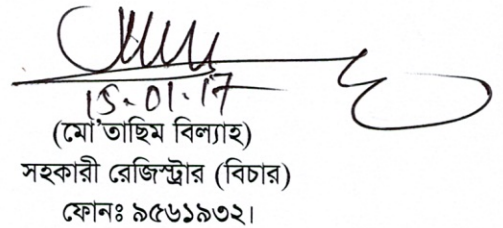 15-01-17
(মো'তাছিম বিল্যাহ)
সহকারী রেজিস্ট্রার (বিচার)
ফোনঃ ৯৫৬১৯৩২।